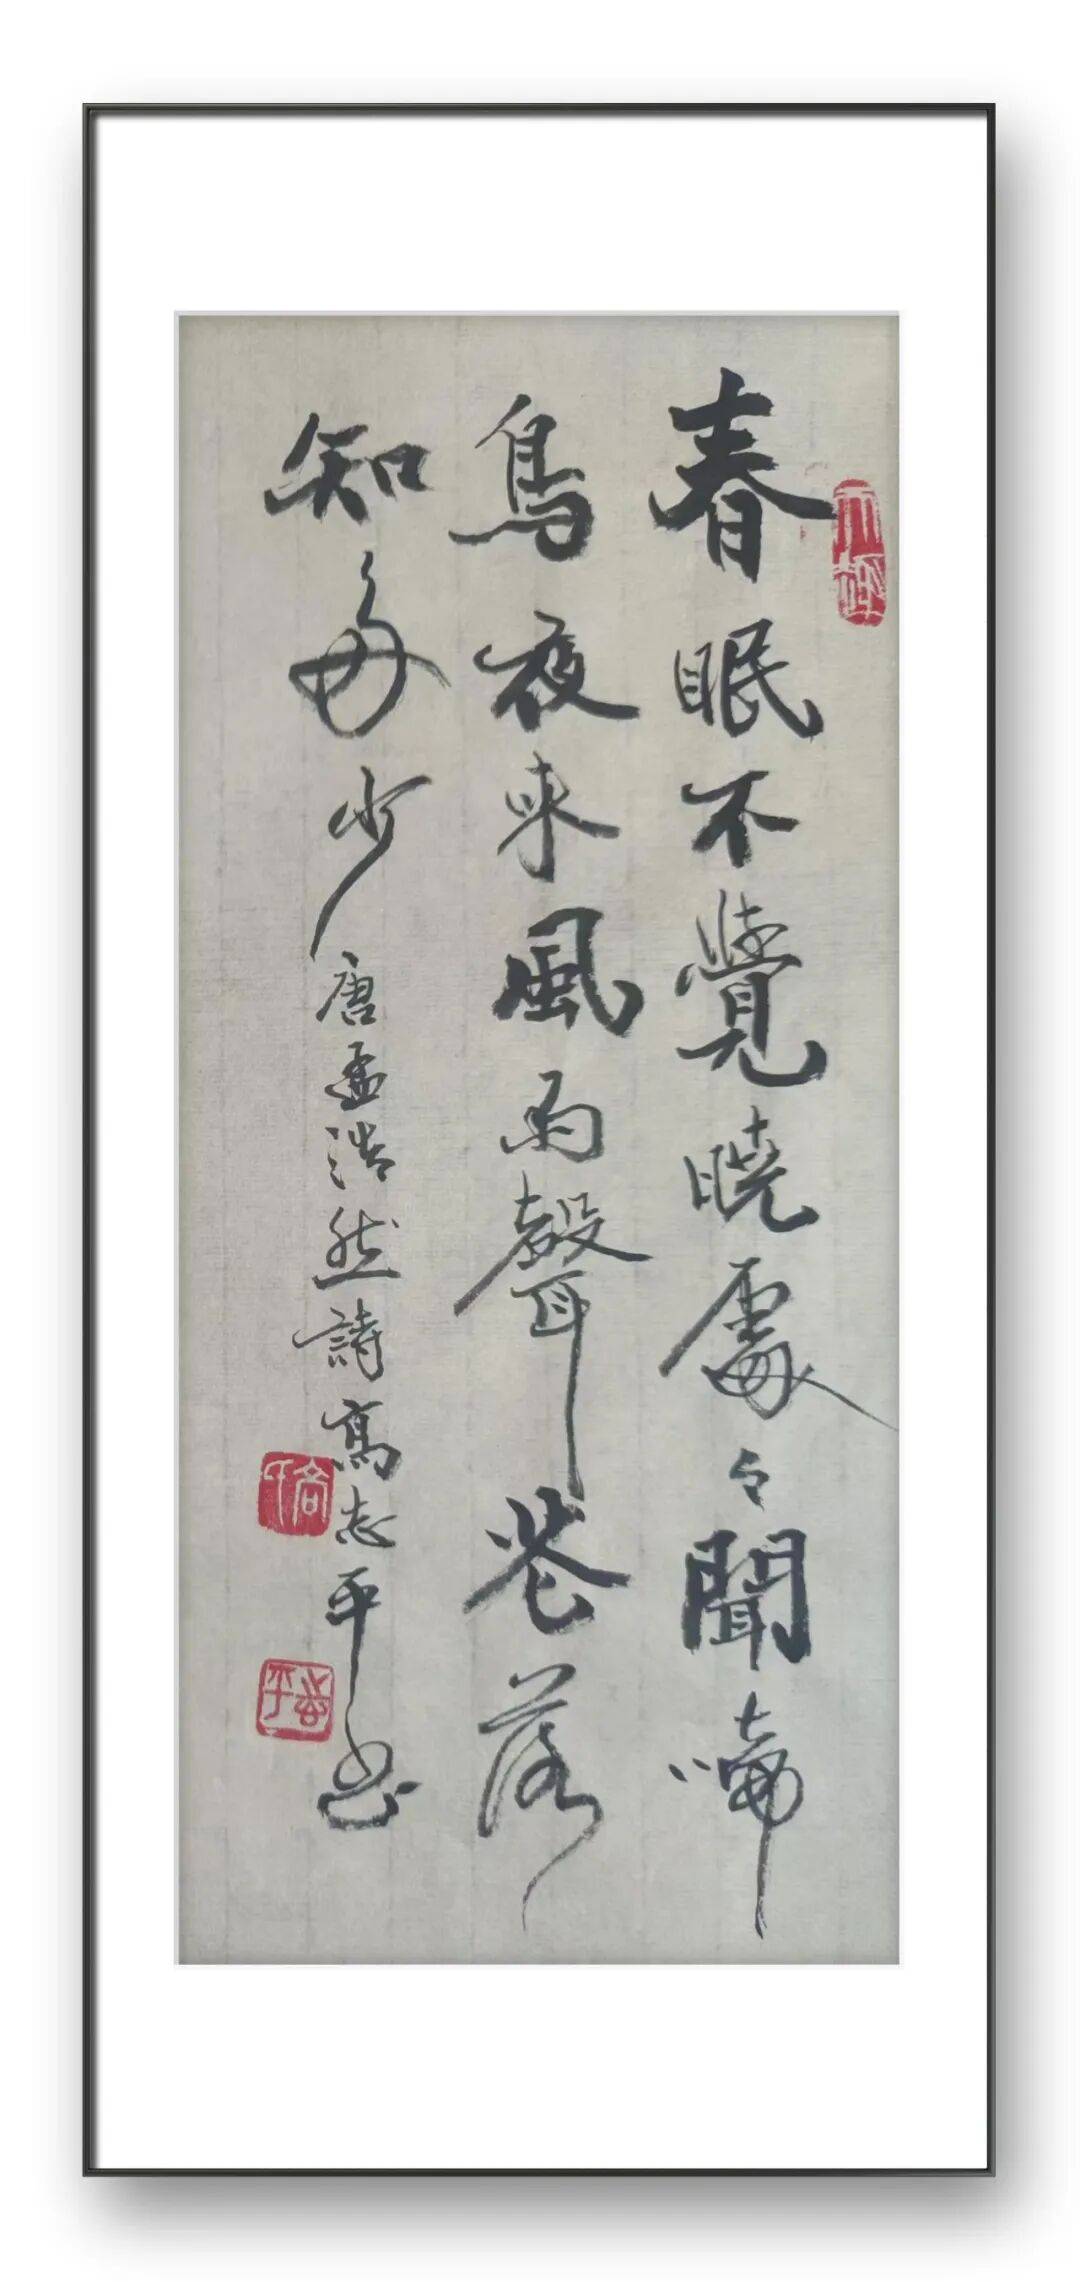 春眠不覺曉處々聞啼
鳥夜來風雨聲花落
知多少唐孟浩然詩高志平書
志平